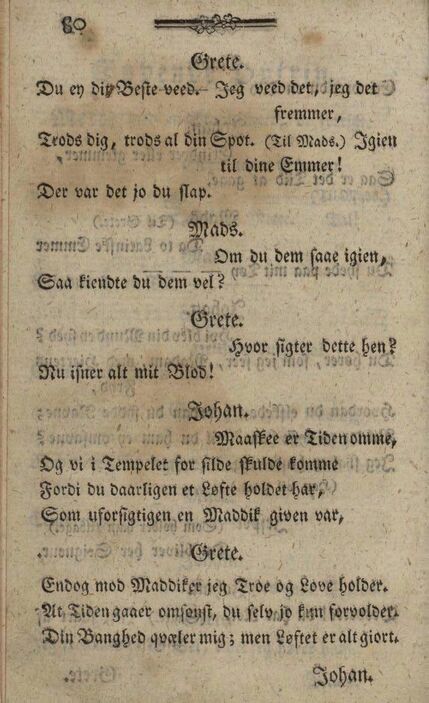 80
Grete.
Du ey dit Beste veed. Jeg veed det, jeg det
fremmer,
Trods dig, trods al din Spot. (Til Mads.) Igien
til dine Emmer!
Der var det jo du slap.
Mads.
Om du dem saae igien,
Saa kiendte du dem vel?
Grete.
Hvor sigter dette hen?
Nu isner alt mit Blod!
Johan.
Maaskee er Tiden omme,
Og vi i Tempelet for silde skulde komme
Fordi du daarligen et Løfte holdet har,
Som uforsigtigen en Maddik given var,
Grete.
Endog mod Maddiker jeg Troe og Love holder.
At Tiden gaaer omsonst, du selv jo kun forvolder.
Din Banghed qvæler mig; men Løftet er alt giort.
Johan.